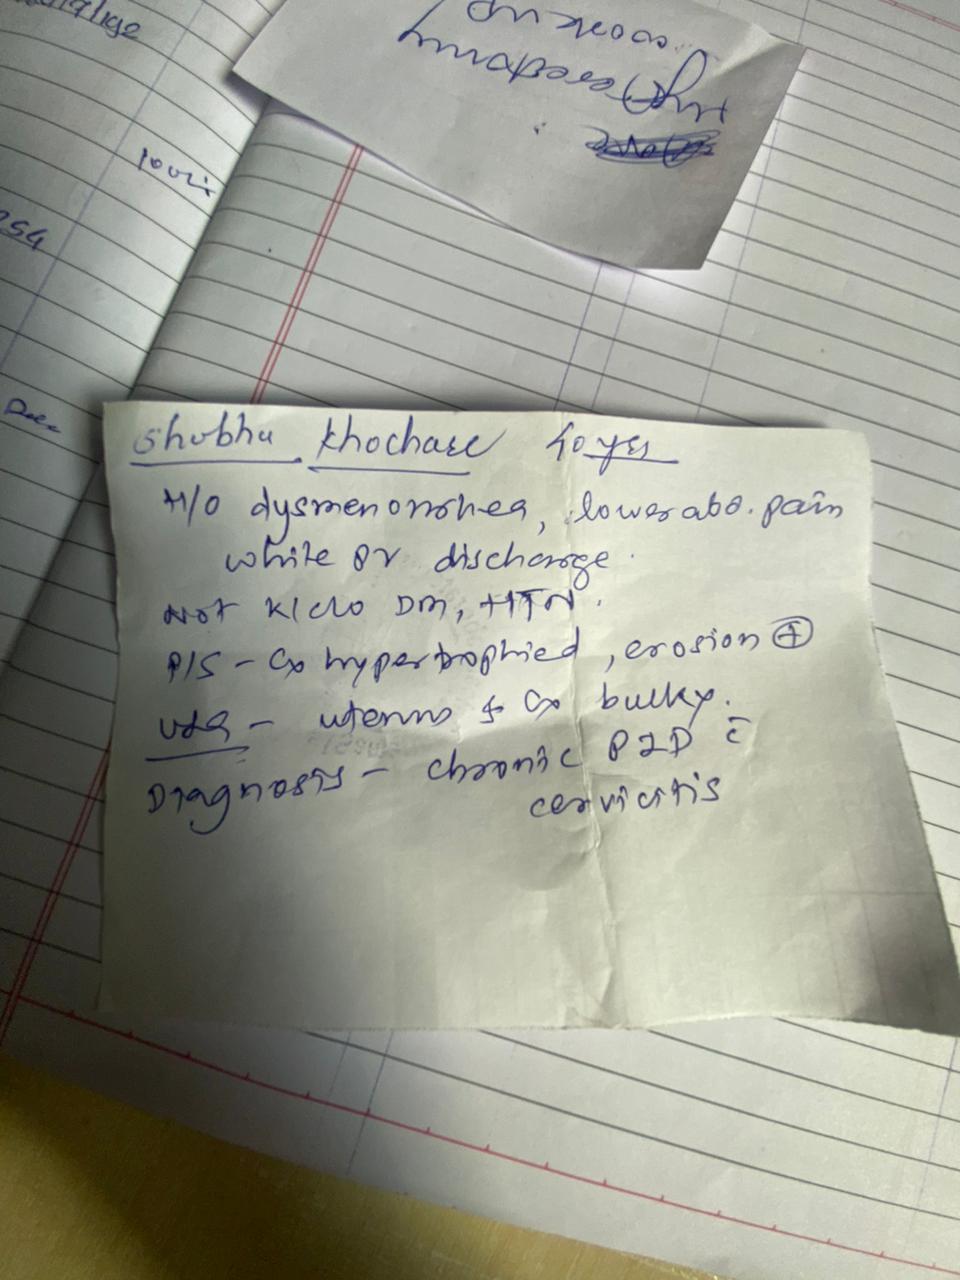 Hysterectomy
work up
10 vit
254
Shubha Khochare 40 yrs
H/O dysmenorrhea, lower abd. pain
white PV discharge.
Not K/c/o DM, HTN.
P/S - Cx hypertrophied, erosion ⊕
USG - uterus & Cx bulky.
Diagnosis - chronic PID c̄
cervicitis